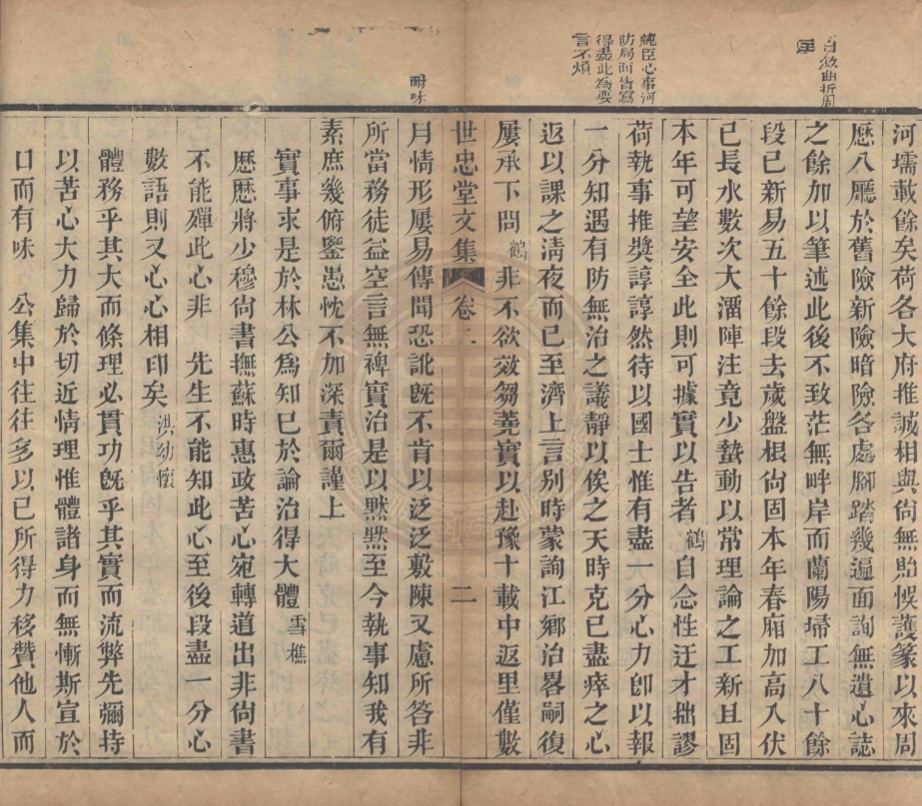 河壖載餘矣荷各大府推誠相與尙無貽悞護篆以來周
歷八廳於舊險新險暗險各處腳踏幾遍面詢無遺心誌
之餘加以筆述此後不致茫無畔岸而蘭陽埽工八十餘
段已新易五十餘段去歲盤根尙固本年春廂加高入伏
已長水數次大溜陣注竟少蟄動以常理論之工新且固
本年可望安全此則可據實以告者鶴自念性迂才拙謬
荷執事推獎諄諄然待以國士惟有盡一分心力卽以報
一分知遇有防無治之議靜以俟之天時克已盡瘁之心
返以課之淸夜而已至濟上言別時蒙詢江鄉治畧嗣復
屢承下問鶴非不欲效芻蕘實以赴豫十載中返里僅數
世忠堂文集 卷二 二
月情形屢易傳聞恐訛旣不肯以泛泛敷陳又慮所答非
所當務徒益空言無裨實治是以默默至今執事知我有
素庶幾俯鑒愚忱不加深責爾謹上
實事求是於林公爲知已於論治得大體 雪樵
歷歷將少穆尙書撫蘇時惠政苦心宛轉道出非尙書
不能殫此心非 先生不能知此心至後段盡一分心
數語則又心心相印矣 洪幼懷
體務乎其大而條理必貫功旣乎其實而流弊先彌持
以苦心大力歸於切近情理惟體諸身而無慚斯宣於
口而有味 公集中往往多以已所得力移贊他人而
曲折周
純臣心事河
防局面皆寫
得盡此爲要
言不煩
耐味